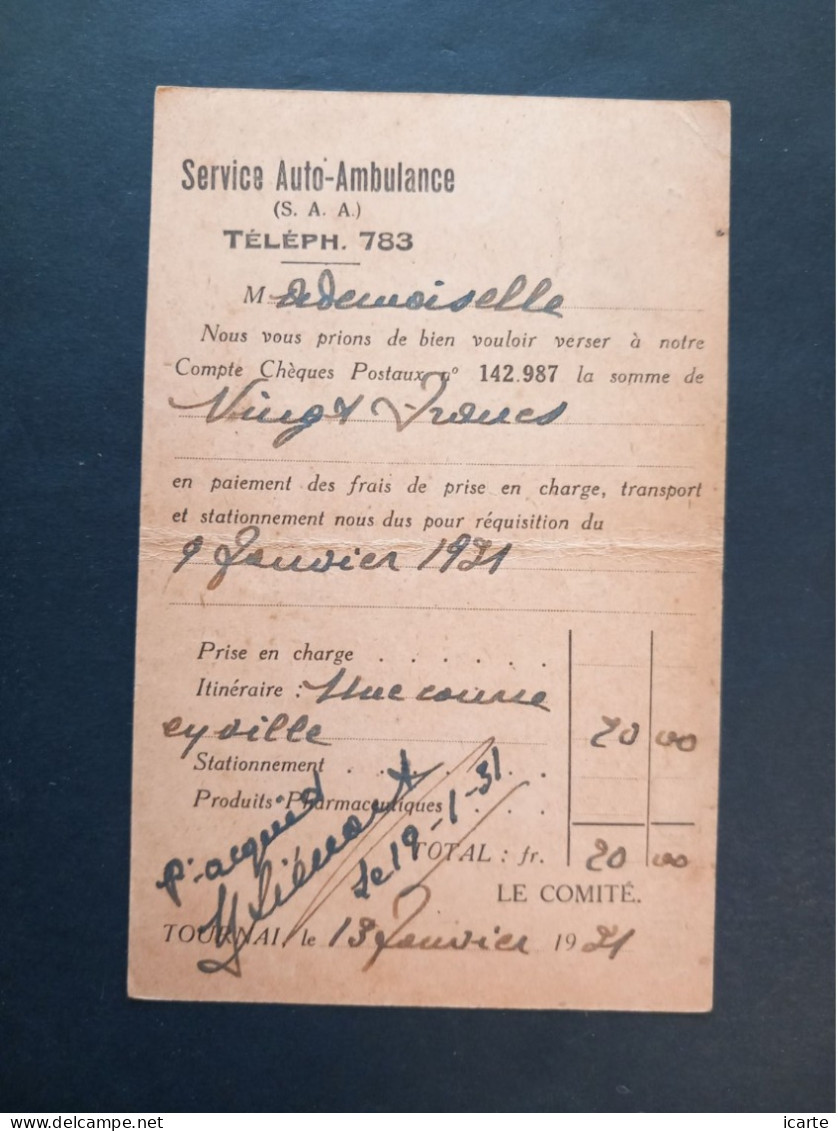 Service Auto-Ambulance
(S. A. A.)
TÉLÉPH. 783
Mademoiselle
Nous vous prions de bien vouloir verser à notre
Compte Chèques Postaux n° 142.987 la somme de
Vingt Francs
en paiement des frais de prise en charge, transport
et stationnement nous dus pour réquisition du
9 Janvier 1931
Prise en charge . . . . . .
Itinéraire : Une course
en ville 20 00
Stationnement . . . . . .
Produits Pharmaceutiques . . .
p. acquit
le 19-1-31
TOTAL : fr. 20 00
LE COMITÉ.
TOURNAI, le 13 Janvier 1931
icarte